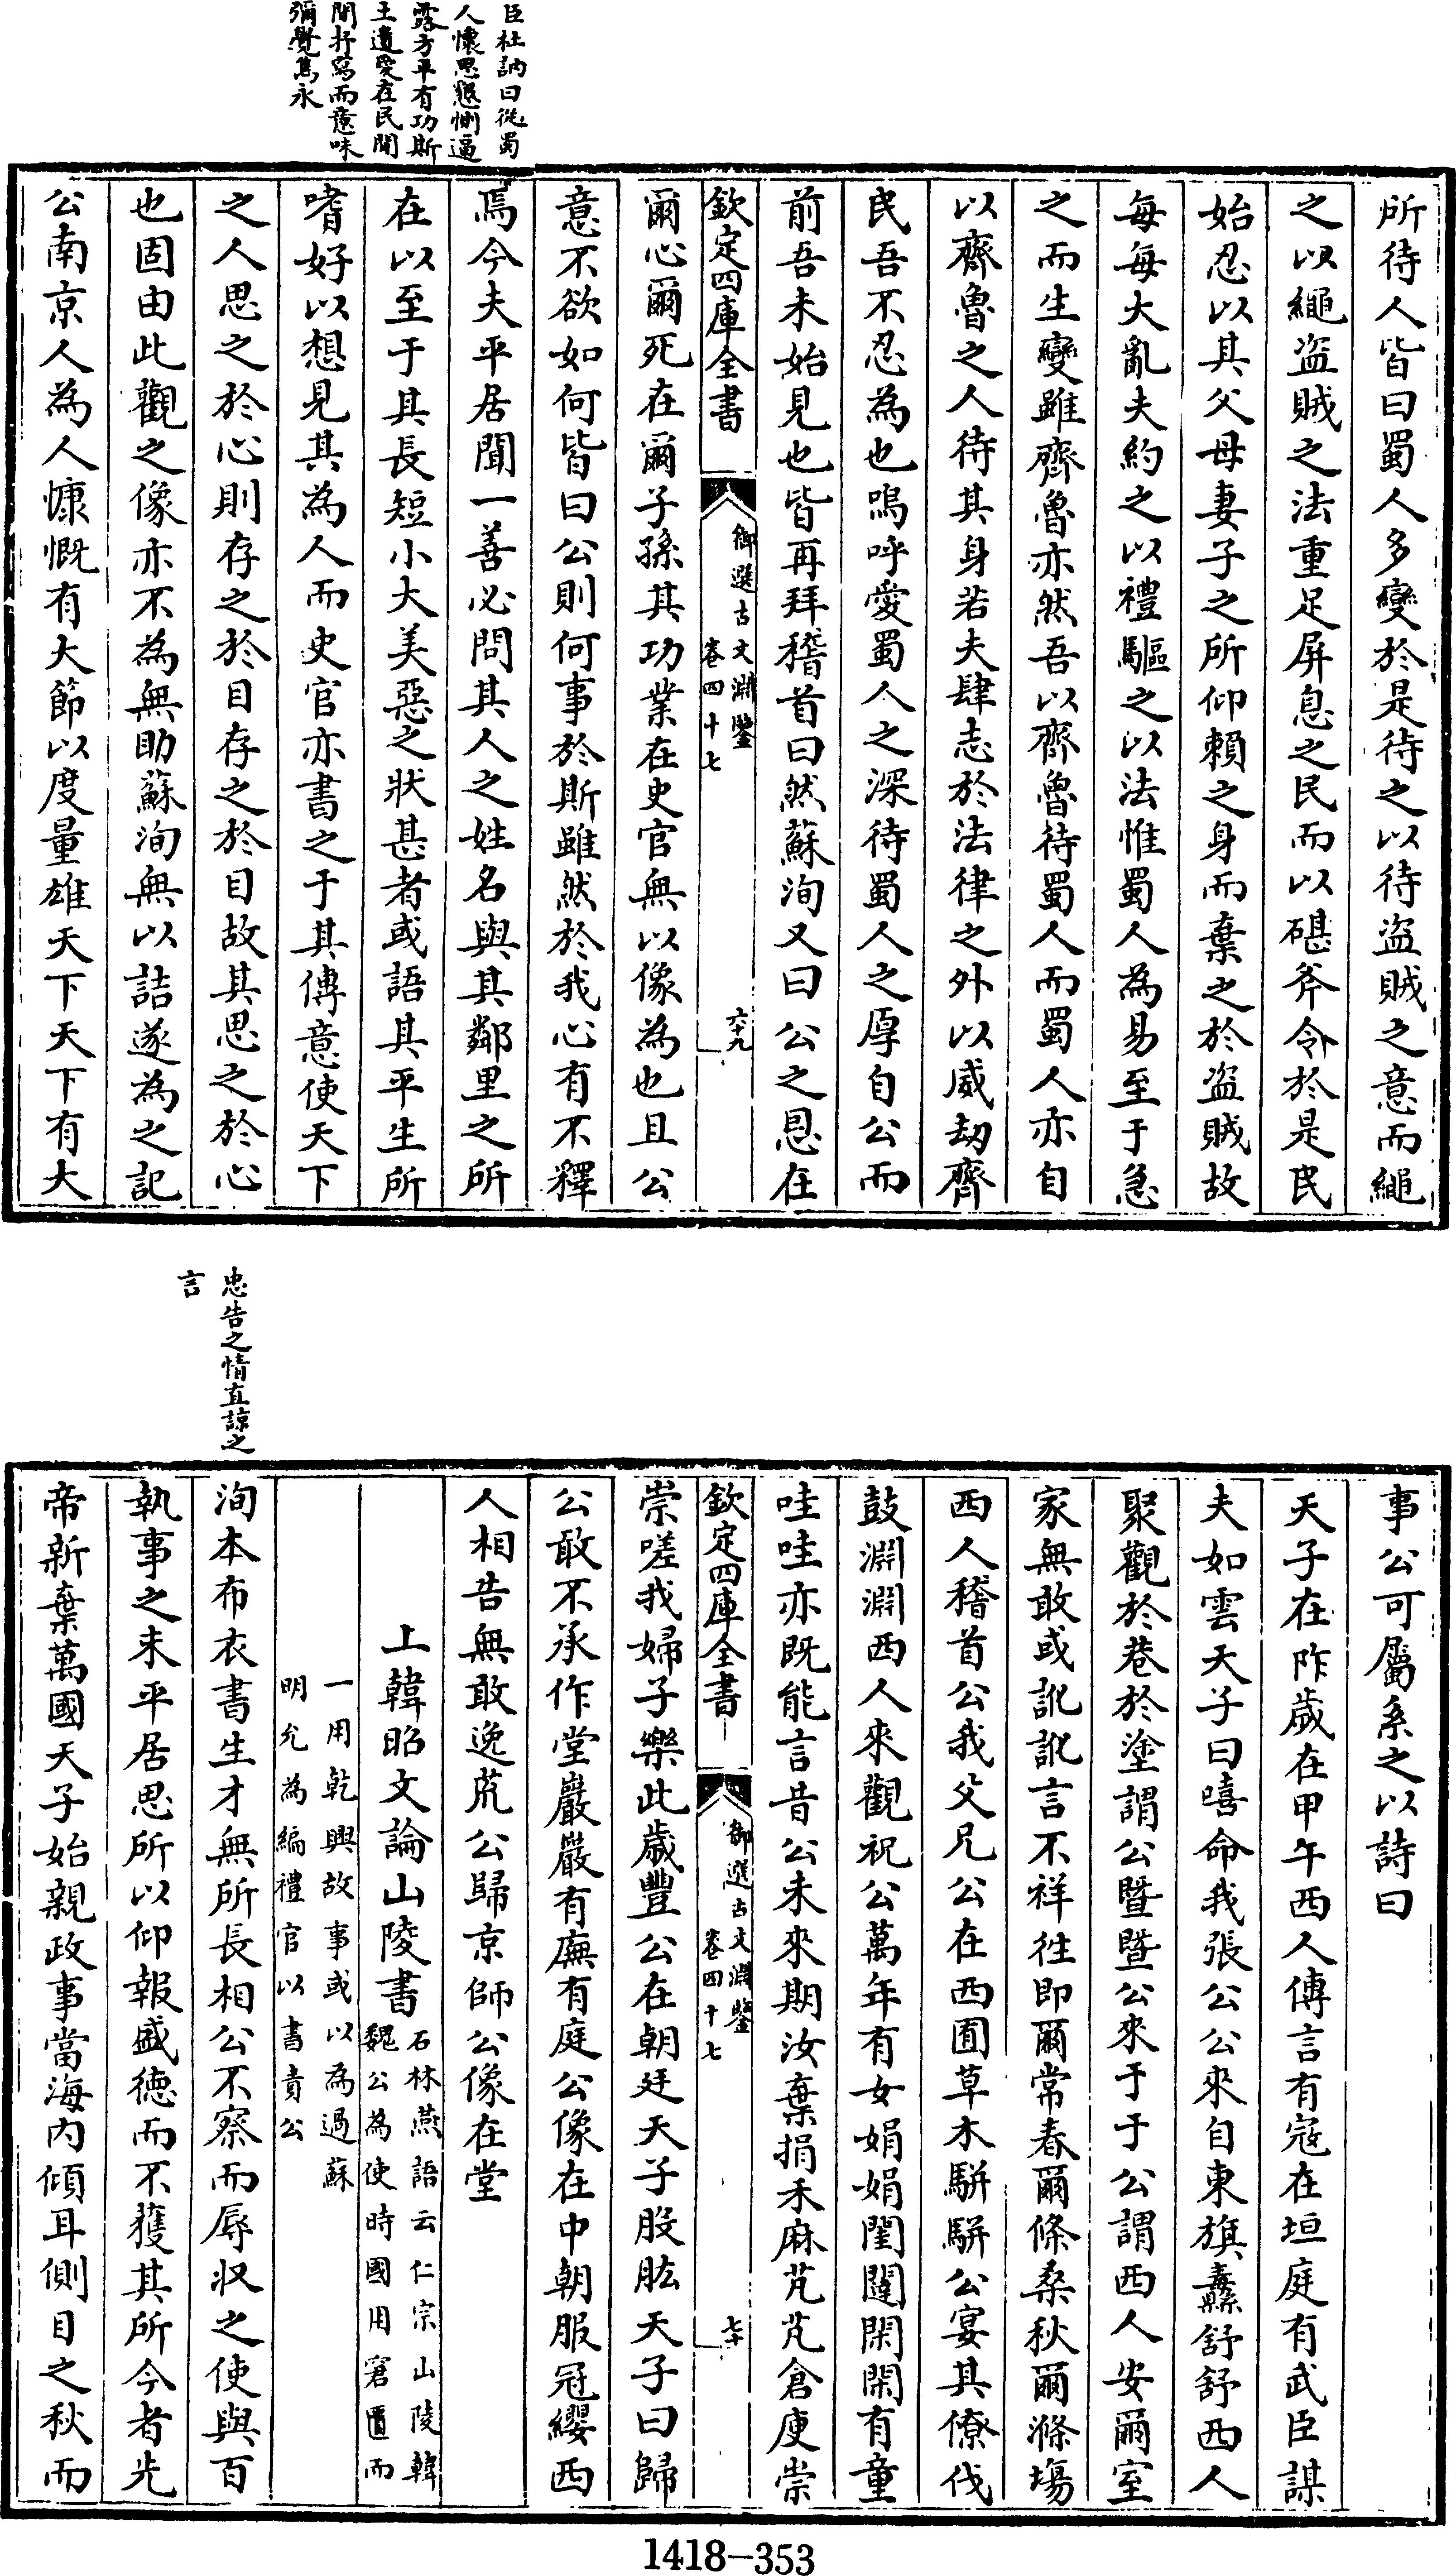 臣杜訥曰從蜀
人懷思懇惻逼
露方平有功斯
土遺愛在民閒
閒抒寫而意味
彌覺雋永
所待人皆曰蜀人多變於是待之以待盜賊之意而繩
之以繩盜賊之法重足屏息之民而以碪斧令於是民
始忍以其父母妻子之所仰賴之身而棄之於盜賊故
每每大亂夫約之以禮驅之以法惟蜀人為易至于急
之而生變雖齊魯亦然吾以齊魯待蜀人而蜀人亦自
以齊魯之人待其身若夫肆志於法律之外以威劫齊
民吾不忍為也嗚呼愛蜀人之深待蜀人之厚自公而
前吾未始見也皆再拜稽首曰然蘇洵又曰公之恩在
欽定四庫全書
御選古文淵鑒
卷四十七
六十九
爾心爾死在爾子孫其功業在史官無以像為也且公
意不欲如何皆曰公則何事於斯雖然於我心有不釋
焉今夫平居聞一善必問其人之姓名與其鄰里之所
在以至于其長短小大美惡之狀甚者或語其平生所
嗜好以想見其為人而史官亦書之于其傳意使天下
之人思之於心則存之於目存之於目故其思之於心
也固由此觀之像亦不為無助蘇洵無以詰遂為之記
公南京人為人慷慨有大節以度量雄天下天下有大
忠告之情直諒之
言
事公可屬系之以詩曰
天子在阼歲在甲午西人傳言有寇在垣庭有武臣謀
夫如雲天子曰嘻命我張公公來自東旗纛舒舒西人
聚觀於巷於塗謂公暨暨公來于于公謂西人安爾室
家無敢或訛訛言不祥往即爾常春爾條桑秋爾滌場
西人稽首公我父兄公在西囿草木駢駢公宴其僚伐
鼓淵淵西人來觀祝公萬年有女娟娟閨闥閑閑有童
哇哇亦既能言昔公未來期汝棄捐禾麻芃芃倉庾崇
欽定四庫全書
御選古文淵鑒
卷四十七
七十
崇嗟我婦子樂此歲豐公在朝廷天子股肱天子曰歸
公敢不承作堂嚴嚴有廡有庭公像在中朝服冠纓西
人相告無敢逸荒公歸京師公像在堂
上韓昭文論山陵書
石林燕語云仁宗山陵韓
魏公為使時國用窘匱而
一用乾興故事或以為過蘇
明允為編禮官以書責公
洵本布衣書生才無所長相公不察而辱収之使與百
執事之末平居思所以仰報盛德而不獲其所今者先
帝新棄萬國天子始親政事當海內傾耳側目之秋而
1418-353